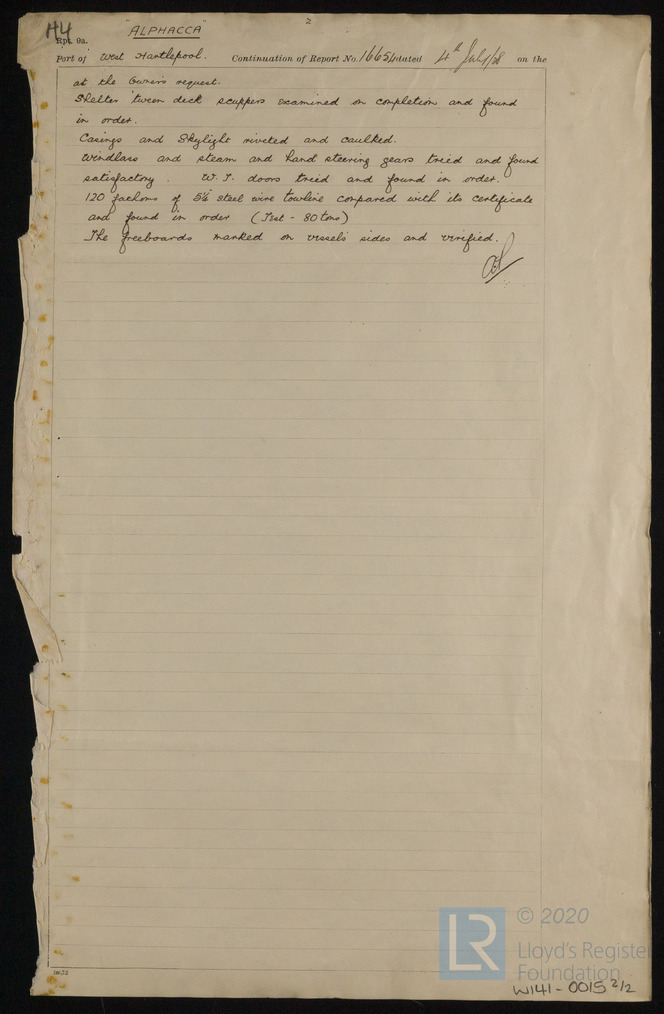 H4
"ALPHACCA"
2
Rpt. 9a.
Port of West Hartlepool. Continuation of Report No. 16654 dated 4th July/28 on the
at the Owner's request.
Shelter 'tween deck scuppers examined on completion and found
in order.
Casings and Skylight riveted and caulked.
Windlass and steam and hand steering gears tried and found
satisfactory. W.T. doors tried and found in order.
120 fathoms of steel wire towline compared with its certificate
and found in order (Test - 80 tons)
The freeboards marked on vessel's sides and verified.
© 2020
LR
Lloyd's Register
Foundation
W141-0015 2/2